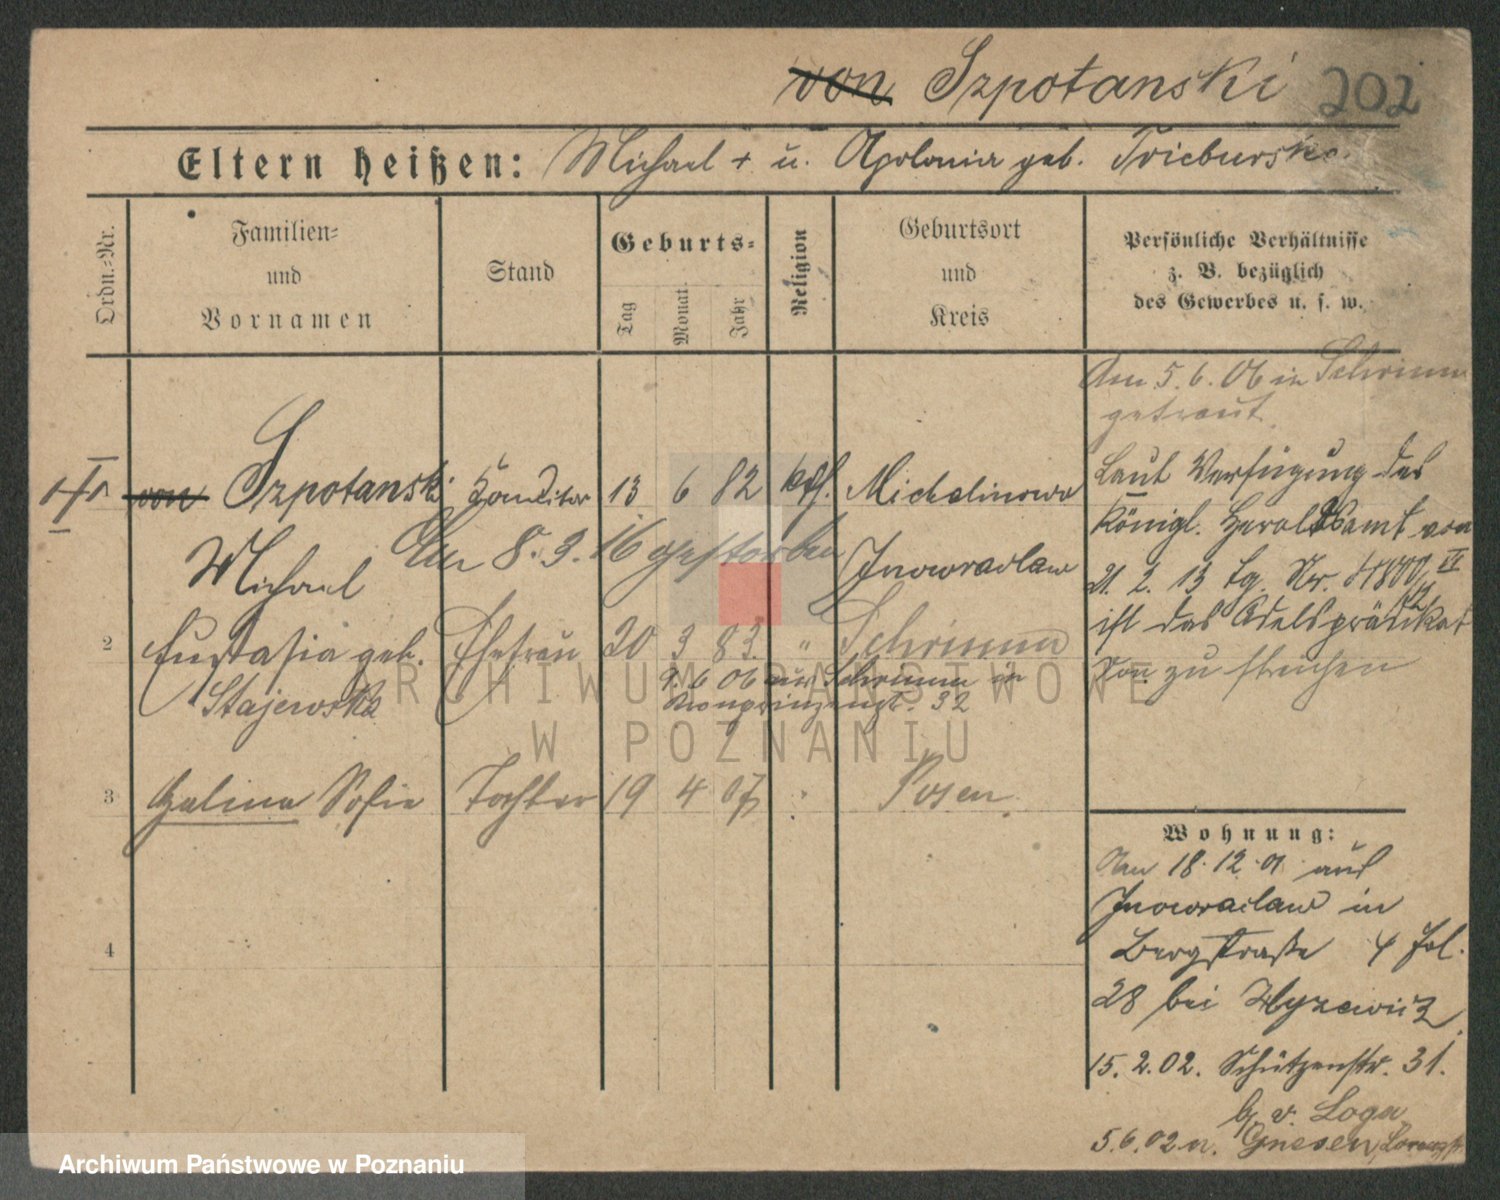 von Szpotanski 202
Eltern heißen: Michael + u. Apolonia geb. Trzeburska
Ordn.-Nr.
Familien-
und
Vornamen
Stand
Geburts-
Tag
Monat.
Jahr
Religion
Geburtsort
und
Kreis
Persönliche Verhältnisse
z. B. bezüglich
des Gewerbes u. s. w.
Am 5.6.06 in Schrimm
getraut.
von Szpotanski Konditor 13 6 82 kth. Michalinowo
Michael Am 8.3.16 gestorben Inowraclaw
Laut Verfügung des
Königl. Heroldsamt von
21. 2. 13 Tg. Nr.
ist das Adelsprädikat
von zu streichen
2 Eustasia geb. Ehefrau 20 3 83. " Schrimm
Stajewska
9.6.06 aus Schrimm in
Kronprinzenst. 32
3 Halina Sofie Tochter 19 4 07 " Posen
4
Wohnung:
Am 18.12.01 aus
Inowraclaw in
Bergstraße 4 Fol.
28 bei
15.2.02. Schützenstr. 31.
b/ v. Loga
5.6.02 n. Gnesen,
ARCHIWUM PAŃSTWOWE
W POZNANIU
Archiwum Państwowe w Poznaniu